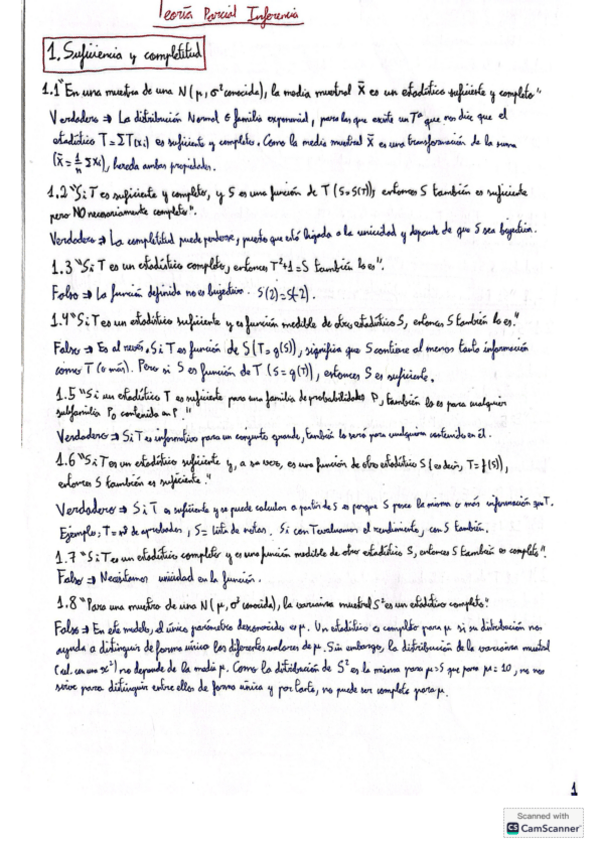 Teoría Parcial Inferencia
1. Suficiencia y completitud
1.1 "En una muestra de una N(μ, σ² conocida), la media muestral X̄ es un estadístico suficiente y completo"
Verdadero ⇒ La distribución Normal es familia exponencial, para las que existe un Tª que nos dice que el
estadístico T = ΣT(xi) es suficiente y completo. Como la media muestral X̄ es una transformación de la suma
(X̄ = 1/n Σxi), hereda ambas propiedades.
1.2 "Si T es suficiente y completo, y S es una función de T (S=S(T)), entonces S también es suficiente
pero NO necesariamente completo".
Verdadero ⇒ La completitud puede perderse, puesto que está ligada a la unicidad y depende de que S sea biyectiva.
1.3 "Si T es un estadístico completo, entonces T²+1=S también lo es".
Falso ⇒ La función definida no es biyectiva. S(2)=S(-2).
1.4 "Si T es un estadístico suficiente y es función medible de otro estadístico S, entonces S también lo es."
Falso ⇒ Es al revés. Si T es función de S (T=g(S)), significa que S contiene al menos tanta información
como T (o más). Pero si S es función de T (S=g(T)), entonces S es suficiente.
1.5 "Si un estadístico T es suficiente para una familia de probabilidades P, también lo es para cualquier
subfamilia P₀ contenida en P."
Verdadero ⇒ Si T es informativo para un conjunto grande, también lo será para cualquiera contenido en él.
1.6 "Si T es un estadístico suficiente y, a su vez, es una función de otro estadístico S (es decir, T=f(S)),
entonces S también es suficiente."
Verdadero ⇒ Si T es suficiente y se puede calcular a partir de S es porque S posee la misma o más información que T.
Ejemplo: T = nº de aprobados, S = lista de notas. Si con T evaluamos el rendimiento, con S también.
1.7 "Si T es un estadístico completo y es una función medible de otro estadístico S, entonces S también es completo".
Falso ⇒ Necesitamos unicidad en la función.
1.8 "Para una muestra de una N(μ, σ² conocida), la varianza muestral S² es un estadístico completo."
Falso ⇒ En este modelo, el único parámetro desconocido es μ. Un estadístico es completo para μ si su distribución nos
ayuda a distinguir de forma única los diferentes valores de μ. Sin embargo, la distribución de la varianza muestral
(rel. con una χ²) no depende de la media μ. Como la distribución de S² es la misma para μ=5 que para μ=10, no nos
sirve para distinguir entre ellos de forma única y por tanto, no puede ser completo para μ.
1
Scanned with
CS CamScanner